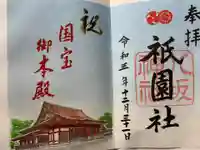 奉拝
祇園社
八坂神社
令和三年十二月三十一日
祝
国宝
御本殿